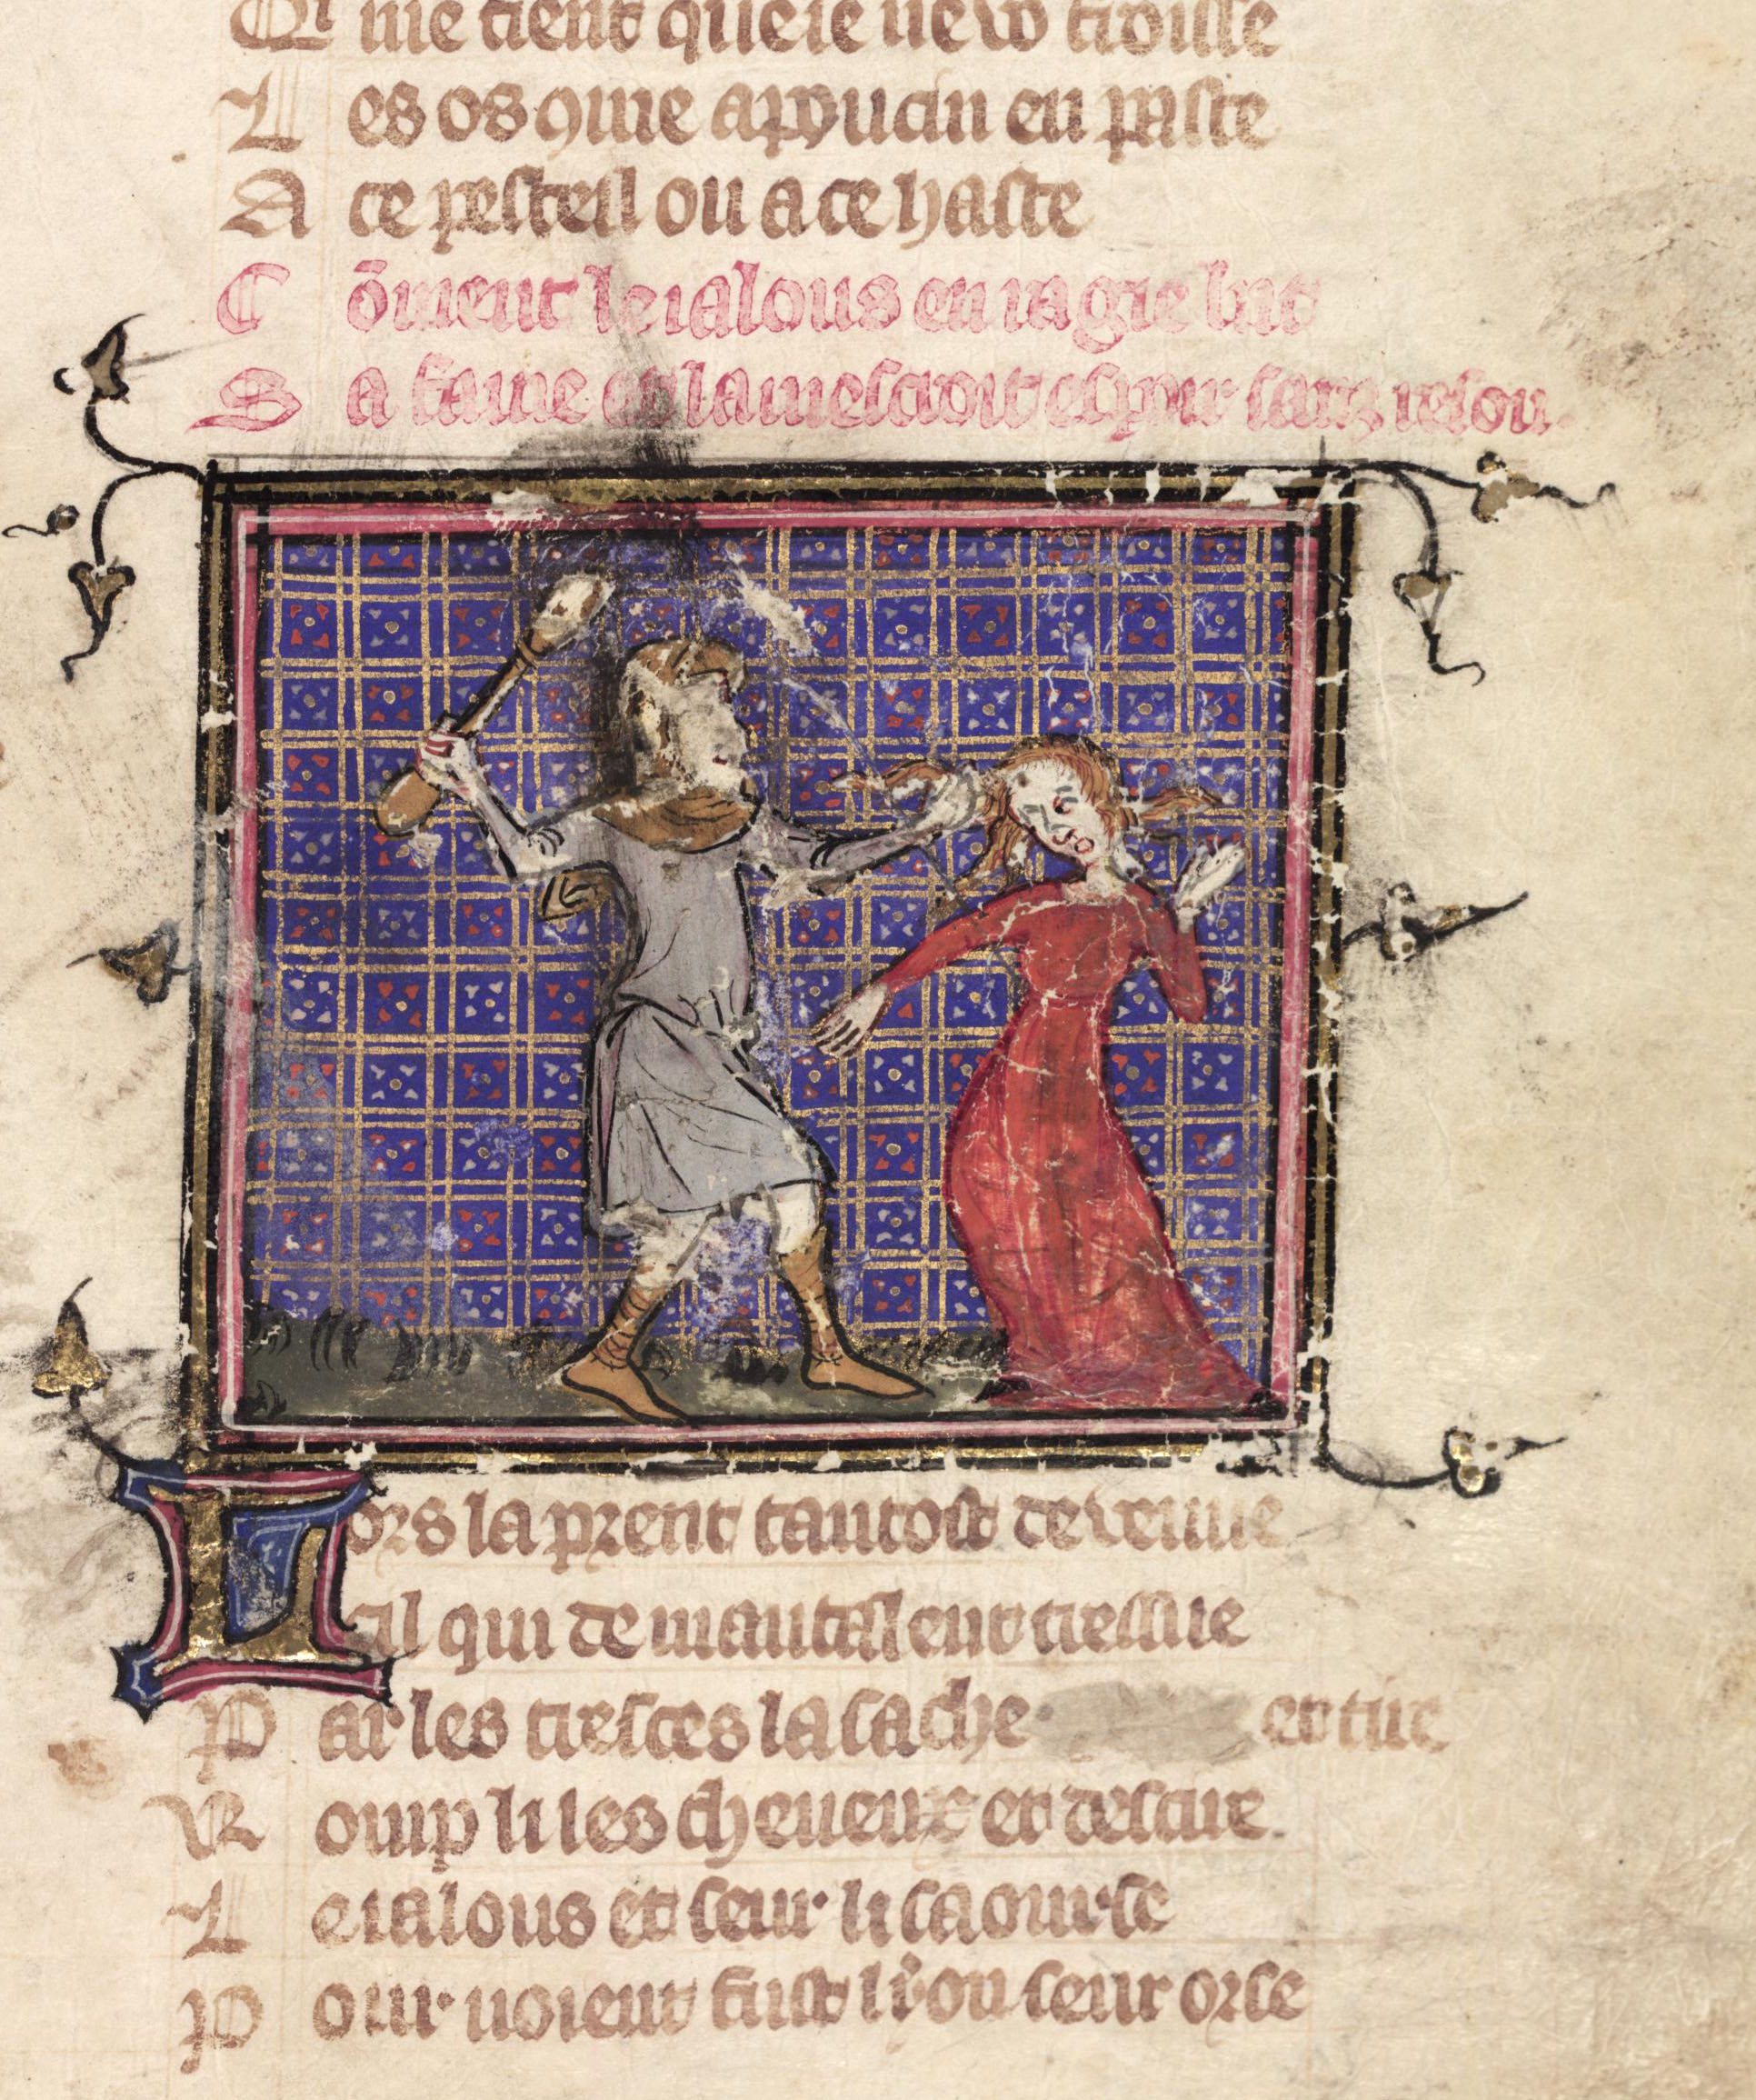 Qi me tient que ie ne vo froisse
Les os 9me a poucin en paste
A ce pesteil ou a ce haste
Cōment le ialous en
Sa fame et la mescroit
Lors la prent tantost de venue
Cil qui de mautalent tressue
Par les tresces la sache et tire
Romp li les cheueux et descire
Le ialous et seur li saourse
Pour noient fust lyon seur orse